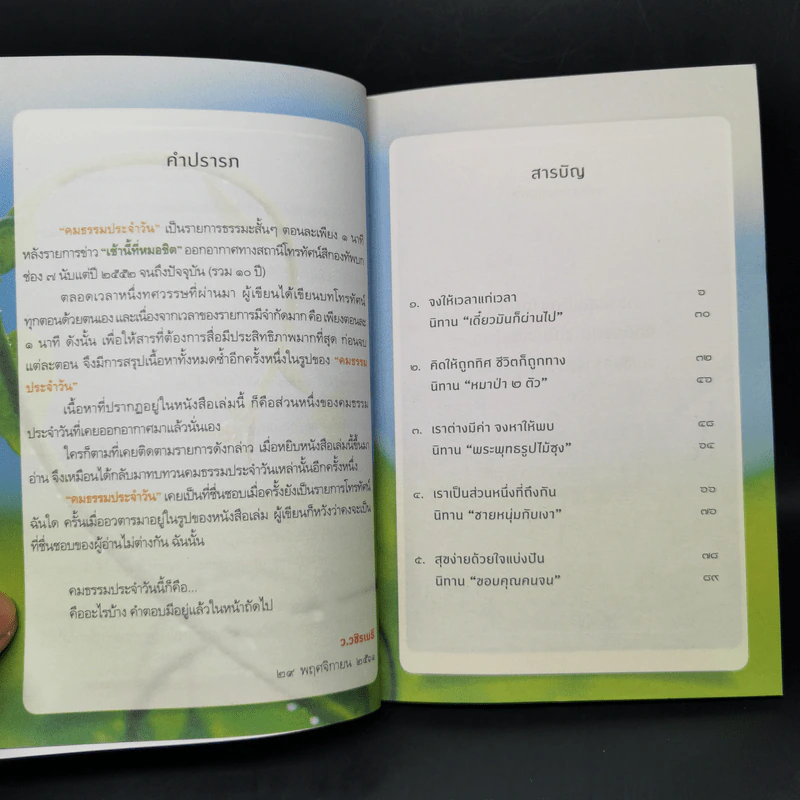 คำปรารภ
"คมธรรมประจำวัน" เป็นรายการธรรมะสั้นๆ ตอนละเพียง ๑ นาที
หลังรายการข่าว "เช้านี้ที่หมอชิต" ออกอากาศทางสถานีโทรทัศน์สีกองทัพบก
ช่อง ๗ นับแต่ปี ๒๕๕๒ จนถึงปัจจุบัน (รวม ๑๐ ปี)
ตลอดเวลาหนึ่งทศวรรษที่ผ่านมา ผู้เขียนได้เขียนบทโทรทัศน์
ทุกตอนด้วยตนเอง และเนื่องจากเวลาของรายการมีจำกัดมาก คือ เพียงตอนละ
๑ นาที ดังนั้น เพื่อให้สารที่ต้องการสื่อมีประสิทธิภาพมากที่สุด ก่อนจบ
แต่ละตอน จึงมีการสรุปเนื้อหาทั้งหมดซ้ำอีกครั้งหนึ่งในรูปของ "คมธรรม
ประจำวัน"
เนื้อหาที่ปรากฏอยู่ในหนังสือเล่มนี้ ก็คือส่วนหนึ่งของคมธรรม
ประจำวันที่เคยออกอากาศมาแล้วนั่นเอง
ใครก็ตามที่เคยติดตามรายการดังกล่าว เมื่อหยิบหนังสือเล่มนี้ขึ้นมา
อ่าน จึงเหมือนได้กลับมาทบทวนคมธรรมประจำวันเหล่านั้นอีกครั้งหนึ่ง
"คมธรรมประจำวัน" เคยเป็นที่ชื่นชอบเมื่อครั้งยังเป็นรายการโทรทัศน์
ฉันใด ครั้นเมื่ออวตารมาอยู่ในรูปของหนังสือเล่ม ผู้เขียนก็หวังว่าคงจะเป็น
ที่ชื่นชอบของผู้อ่านไม่ต่างกัน ฉันนั้น
คมธรรมประจำวันนี้ก็คือ...
คืออะไรบ้าง คำตอบมีอยู่แล้วในหน้าถัดไป
ว.วชิรเมธี
๒๙ พฤศจิกายน
สารบัญ
๑. จงให้เวลาแก่เวลา ๖
นิทาน "เดี๋ยวมันก็ผ่านไป" ๓๐
๒. คิดให้ถูกทิศ ชีวิตก็ถูกทาง ๓๒
นิทาน "หมาป่า ๒ ตัว" ๔๖
๓. เราต่างมีค่า จงหาให้พบ ๔๘
นิทาน "พระพุทธรูปไม้ซุง" ๖๔
๔. เราเป็นส่วนหนึ่งที่ถึงกัน ๖๖
นิทาน "ชายหนุ่มกับเงา" ๗๖
๕. สุขง่ายด้วยใจแบ่งปัน ๗๘
นิทาน "ขอบคุณคนจน" ๘๙